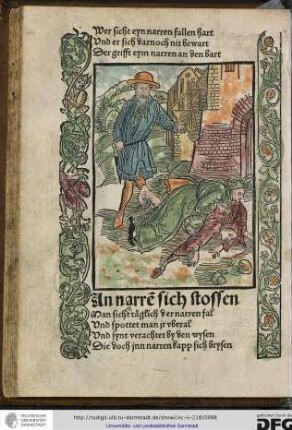 Wer sicht eyn narren fallen hart
Vnd er sich darnoch nit bewart
Der grifft eym narren an den bart
An narrē sich stossen
Man sicht täglich der narren fal
Vnd spottet man jr vberal
Vnd synt verachtet by den wysen
Die doch jnn narren kapp sich brysen
TECHNISCHE UNIVERSITÄT DARMSTADT
http://tudigit.ulb.tu-darmstadt.de/show/inc-ii-218/0098
Universitäts- und Landesbibliothek Darmstadt
gefördert durch die
DFG